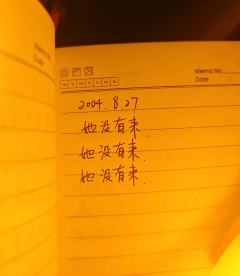 Memo No.
Date
2004. 8.27
她没有来.
她没有来.
她没有来.